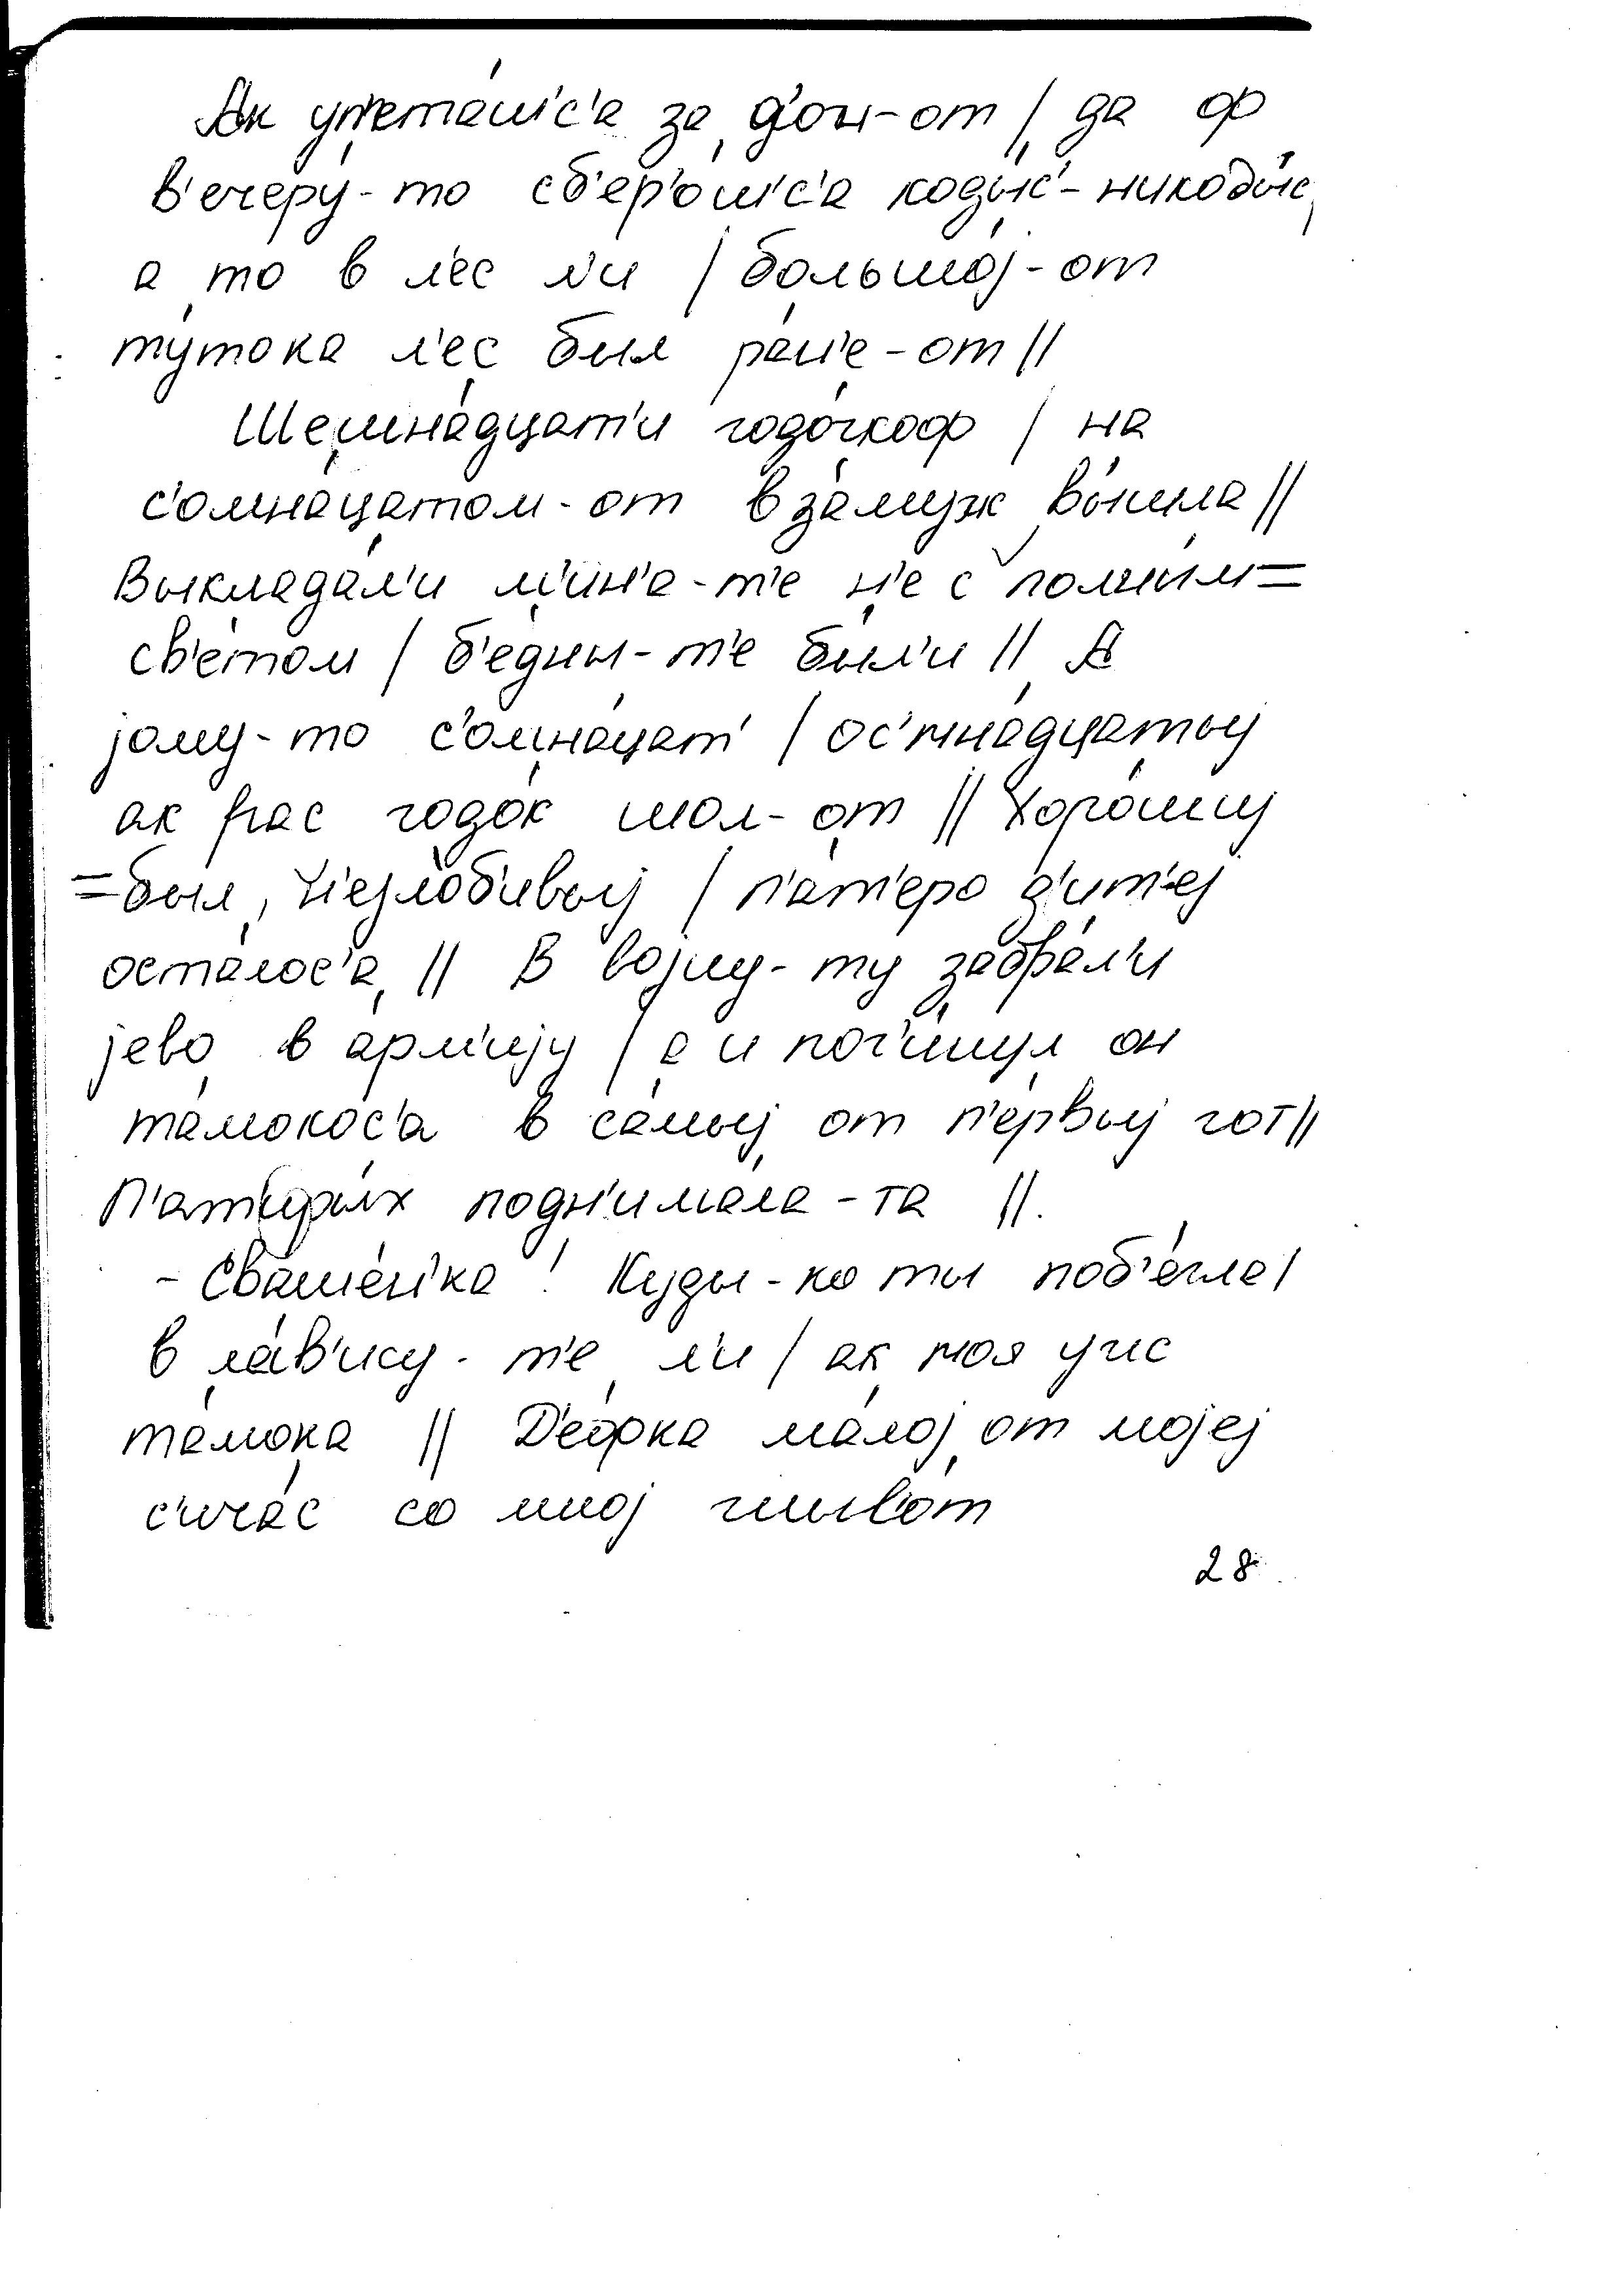 Ак упета́ш'с'а за д'он-от / да ф
в'ечеру́-то сб'ер'о́ш'с'а коды́с'-никоды́с,
а то в л'ес л'и / большо́ј-от
ту́тока л'ес был ра́н'е-от //
Шешна́дцат'и годо́чкоф / на
с'омна́цатом-от вза́муж вы́шла //
Выклада́л'и м'ин'а-т'е н'е с полны́м=
св'е́том / б'е́дны-т'е бы́л'и // А
јому́-то с'омна́цат' / ос'мна́дцатыј
ак рас годо́к шол-от // Хоро́шыј
=был, н'езло́б'ивыј / п'а́т'еро д'ит'е́ј
оста́лос'а // В војну́-ту забра́л'и
јево́ в а́рм'ију / а и пог'и́нул он
та́мокос'а в са́мыј от п'е́рвыј гот //
П'ат'еры́х подн'има́ла-та //.
- Сва́шен'ка! Куды́-ко ты поб'е́гла /
в ла́в'ису-т'е л'и / ак моя уис
та́мока // Д'е́фка мало́ј от моје́ј
с'ича́с со мно́ј гиыв'о́т
28